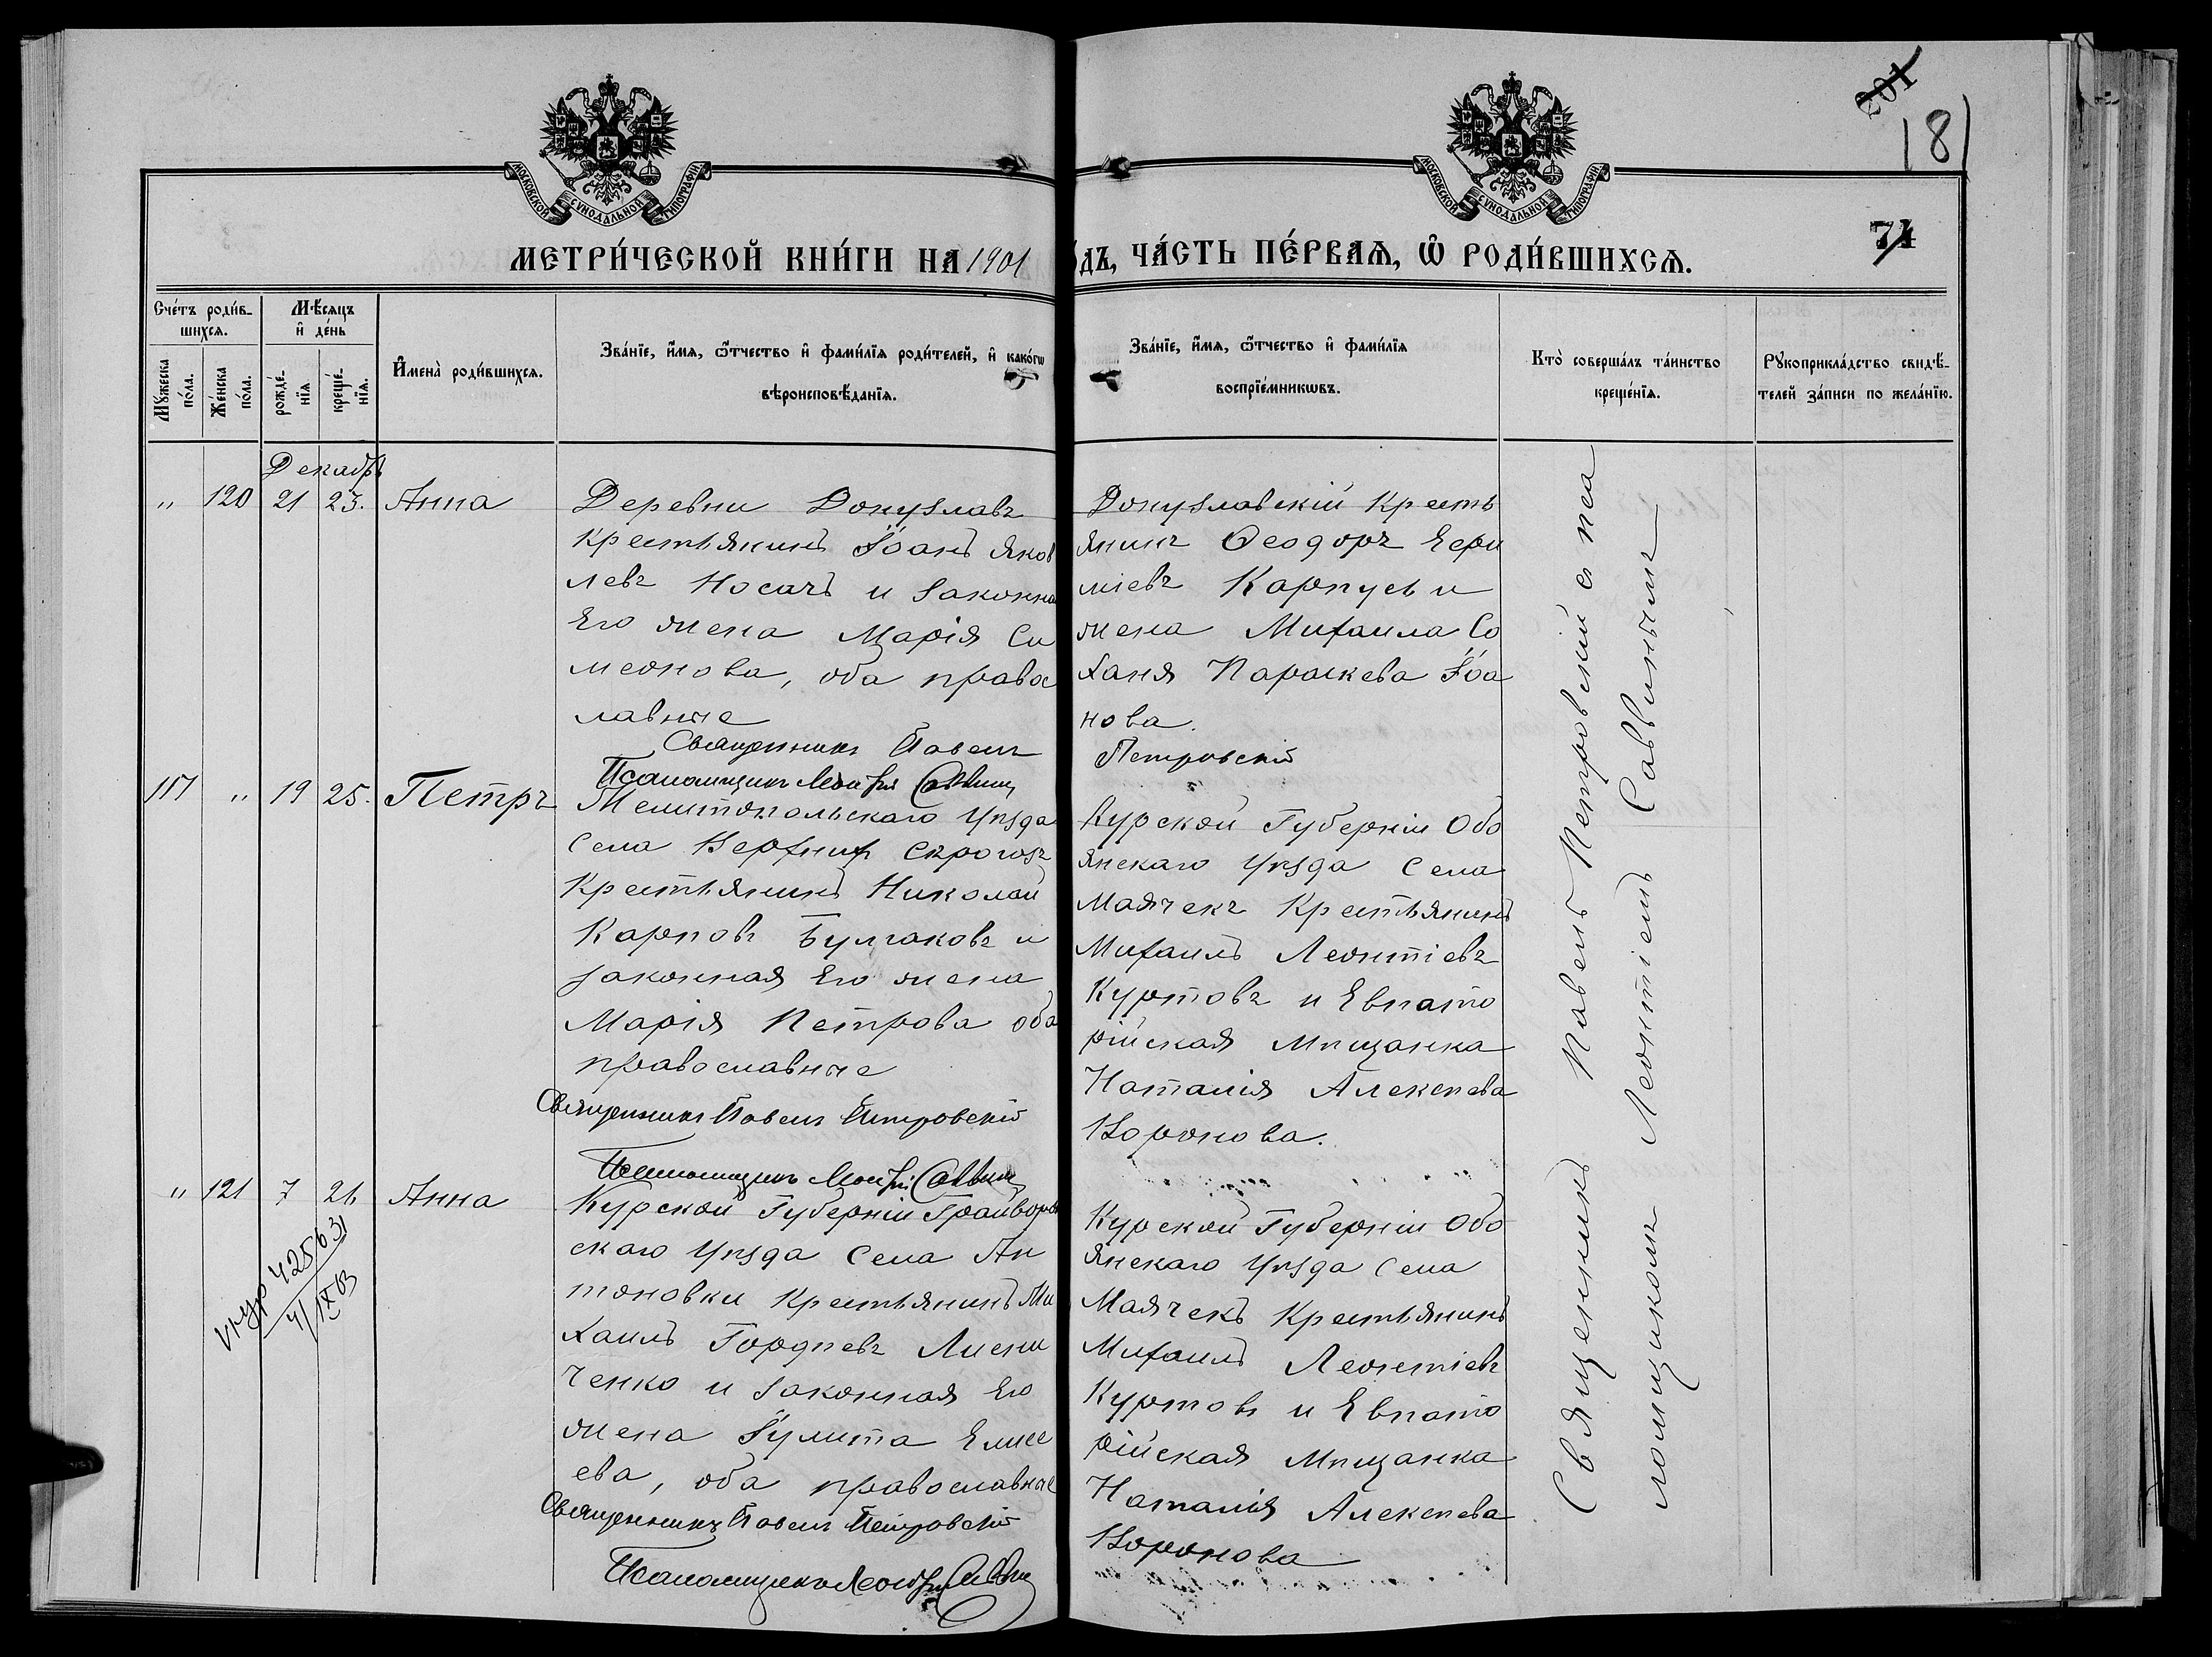 201
181
МОСКОВСКОЙ СѴНОДАЛЬНОЙ ТИПОГРАФІИ
МОСКОВСКОЙ СѴНОДАЛЬНОЙ ТИПОГРАФІИ
МЕТРИ́ЧЕСКОЙ КНИ́ГИ НА 1901
ОДЪ, ЧА́СТЬ ПЕ́РВАѦ, Ѡ҆ РОДИ́ВШИХСѦ.
74
Сче́тъ роди́в-
шихсѧ.
Мꙋжеска по́ла.
Же́нска по́ла.
Мѣ́сѧцъ и҆ де́нь
рожде́-нїѧ
креще́-нїѧ.
И҆мена̀ роди́вшихсѧ.
Зва́нїе, и҆́мѧ, ѻ҆́тчество и҆ фами́лїѧ роди́телей, и҆ како́гѡ
вѣроисповѣ́данїѧ.
Зва́нїе, и҆́мѧ, ѻ҆́тчество и҆ фами́лїѧ
воспрїе́мникѡвъ.
Кто̀ соверша́лъ та́инство
креще́нїѧ.
Рꙋкоприкла́дство свидѣ́-
телей за́писи по жела́нїю.
Декабрь
" 120 21 23. Анна
Деревни Донузлавъ
Крестьянинъ Іоанъ Яков
левъ Носачъ и законна
Его жена Марія Си
меонова, оба правос
лавные
Священникъ Павелъ
Псаломщикъ Леонтій Саввин
Донузлавскій Кресть
янинъ Ѳеодоръ Ери
міевъ Карпусь и
жена Михаила Со
ханя Параскева Іоа
нова.
Петровскій
117 " 19 25. Петръ
Мелитопольскаго Уѣзда
Села Верхних Серогозъ
Крестьянинъ Николай
Карповъ Булгаковъ и
законная Его жена
Марія Петрова оба
православные
Священникъ Павелъ Петровскій
Псаломщикъ Леонтій Саввин
Курской Губерніи Обо
янскаго Уѣзда Села
Маячекъ Крестьянинъ
Михаилъ Леонтіевъ
Куртовъ и Евпато
рійская Мѣщанка
Наталія Алексѣева
Воронова.
" 121 7 26 Анна
425631
4/IX 63
Курской Губерніи Грайворон
скаго Уѣзда Села Ан
тоновки Крестьянинъ Ми
хаилъ Гордѣевъ Лиси
ченко и законная Его
жена Іулита Елисе
ева, оба православные
Священникъ Павелъ Петровскій
Псаломщикъ Леонтій Саввин
Курской Губерніи Обо
янскаго Уѣзда Села
Маячекъ Крестьянинъ
Михаилъ Леонтіевъ
Куртовъ и Евпато
рійская Мѣщанка
Наталія Алексѣева
Воронова
Священникъ Павелъ Петровскій с пса
ломщикомъ Леонтіемъ Саввинымъ